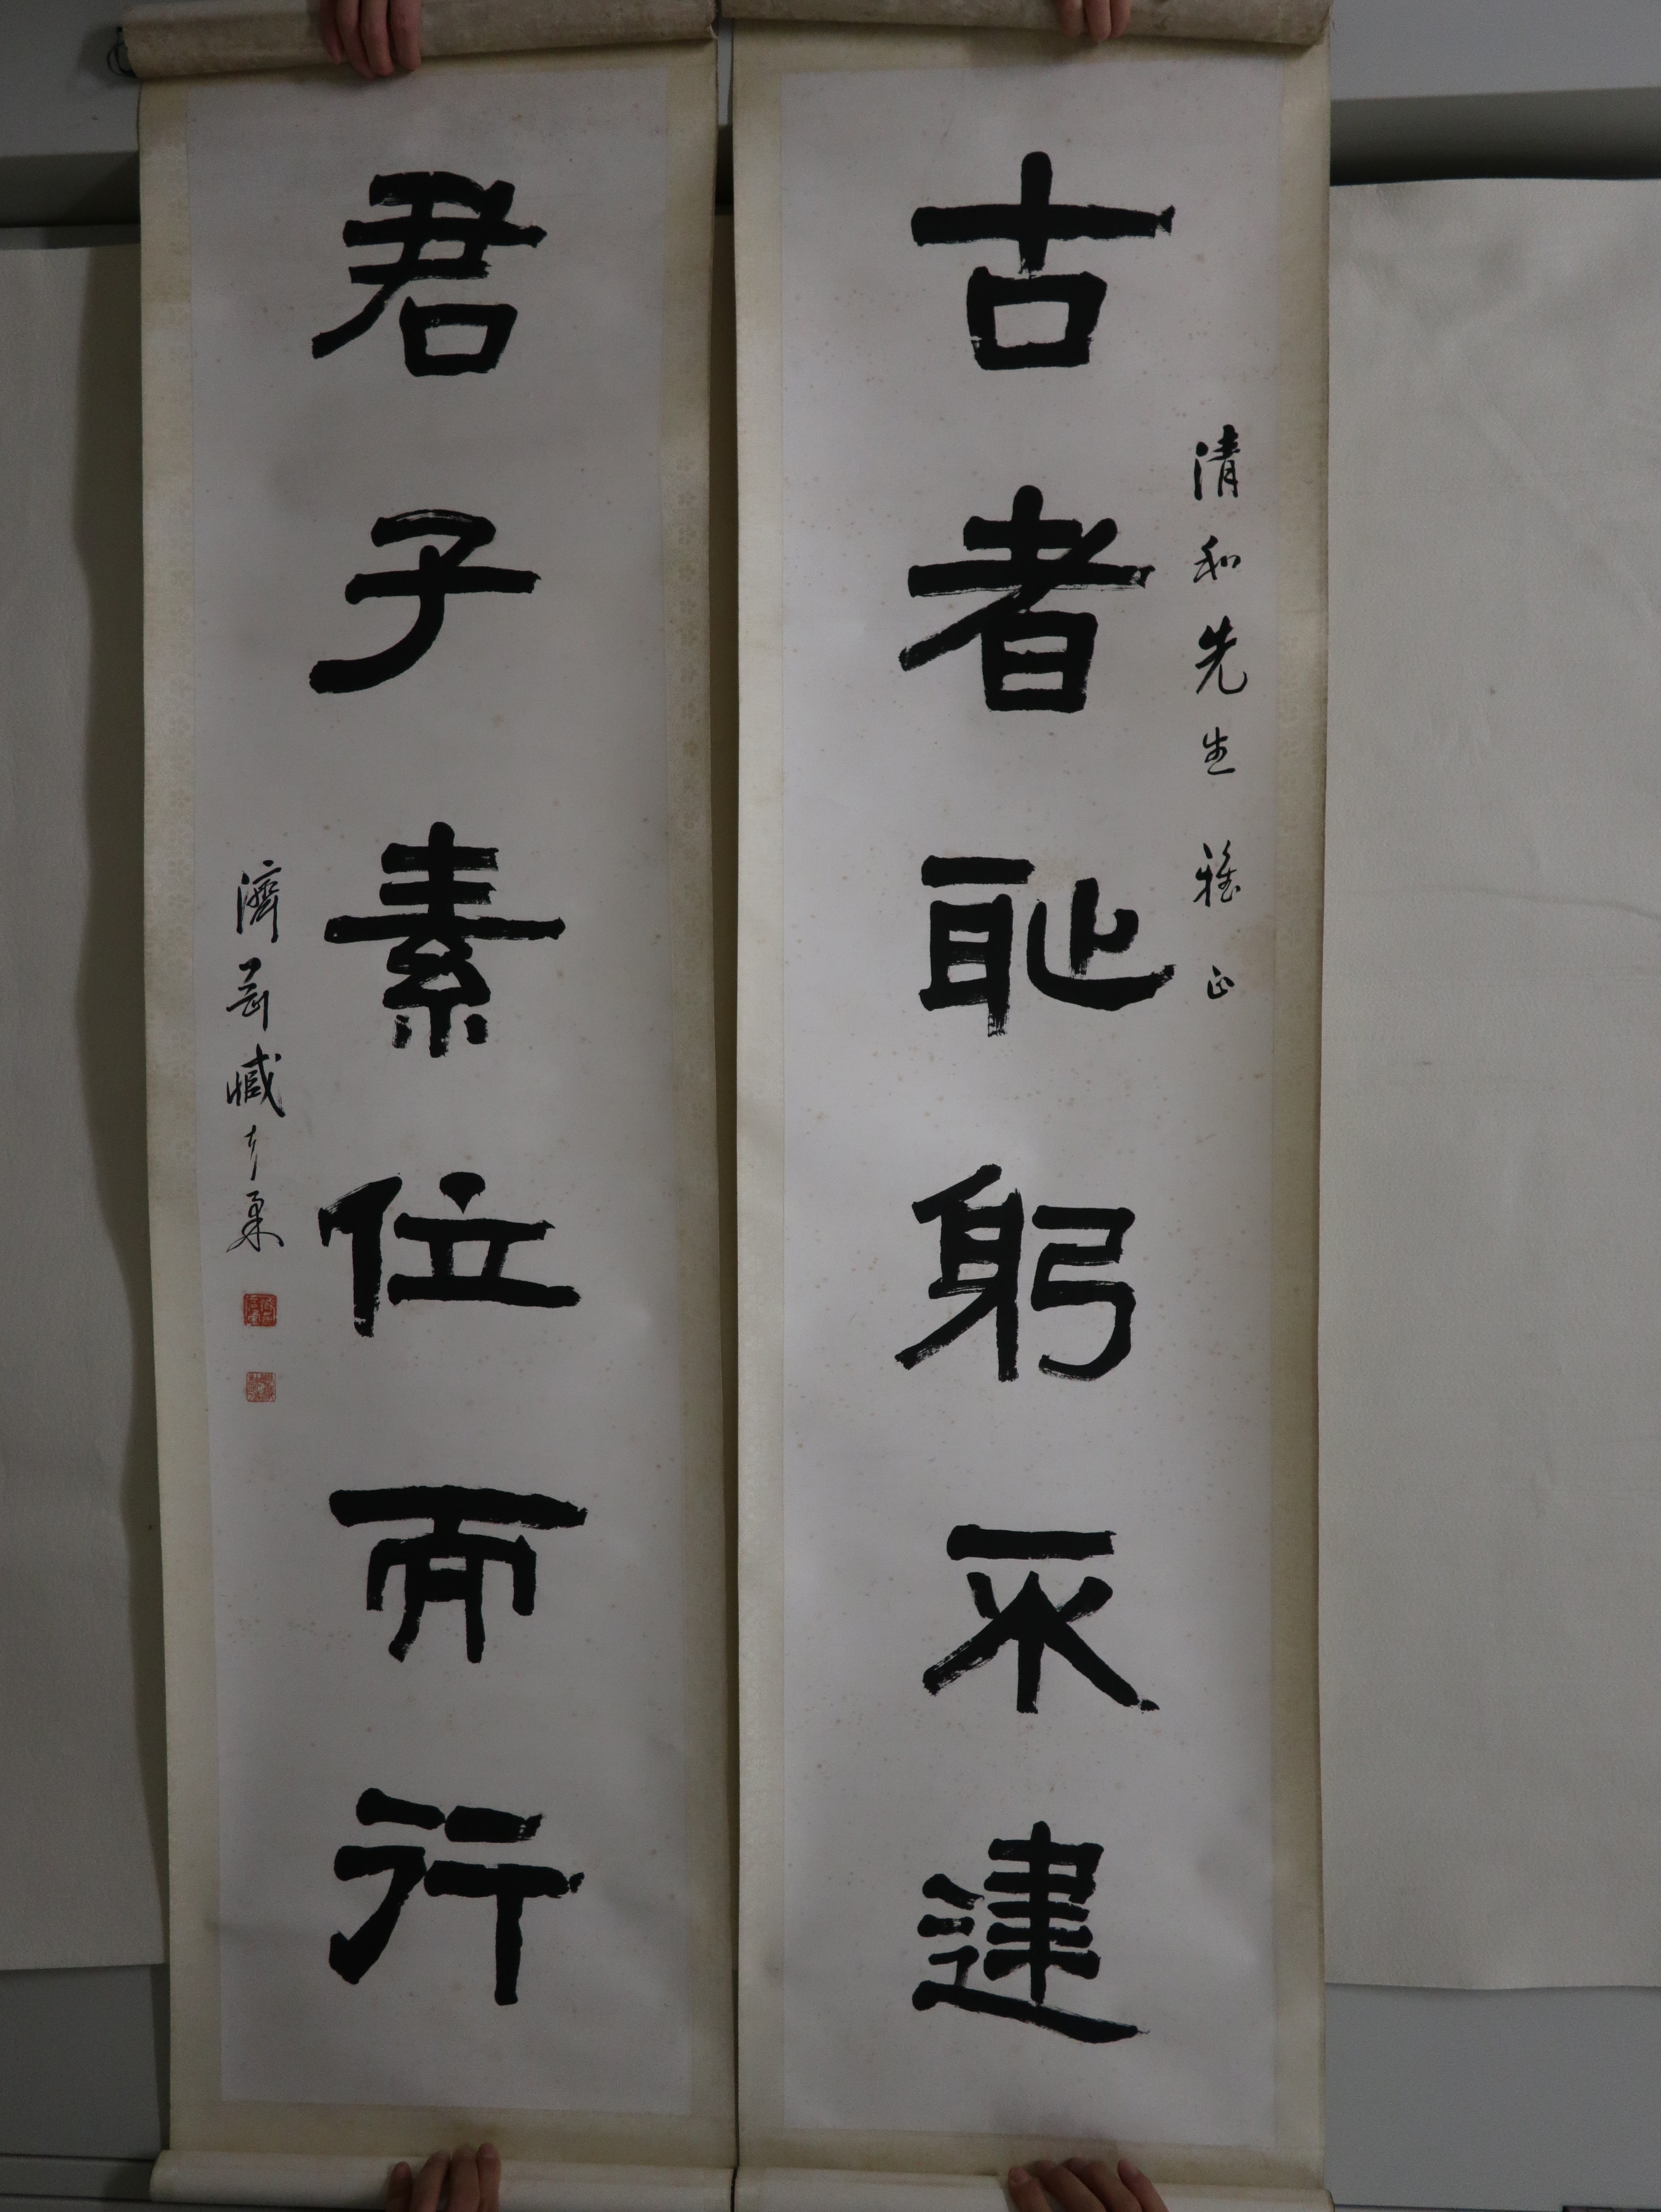 清和先生 雅正
古者耻躬不逮
君子素位而行
濟 臧